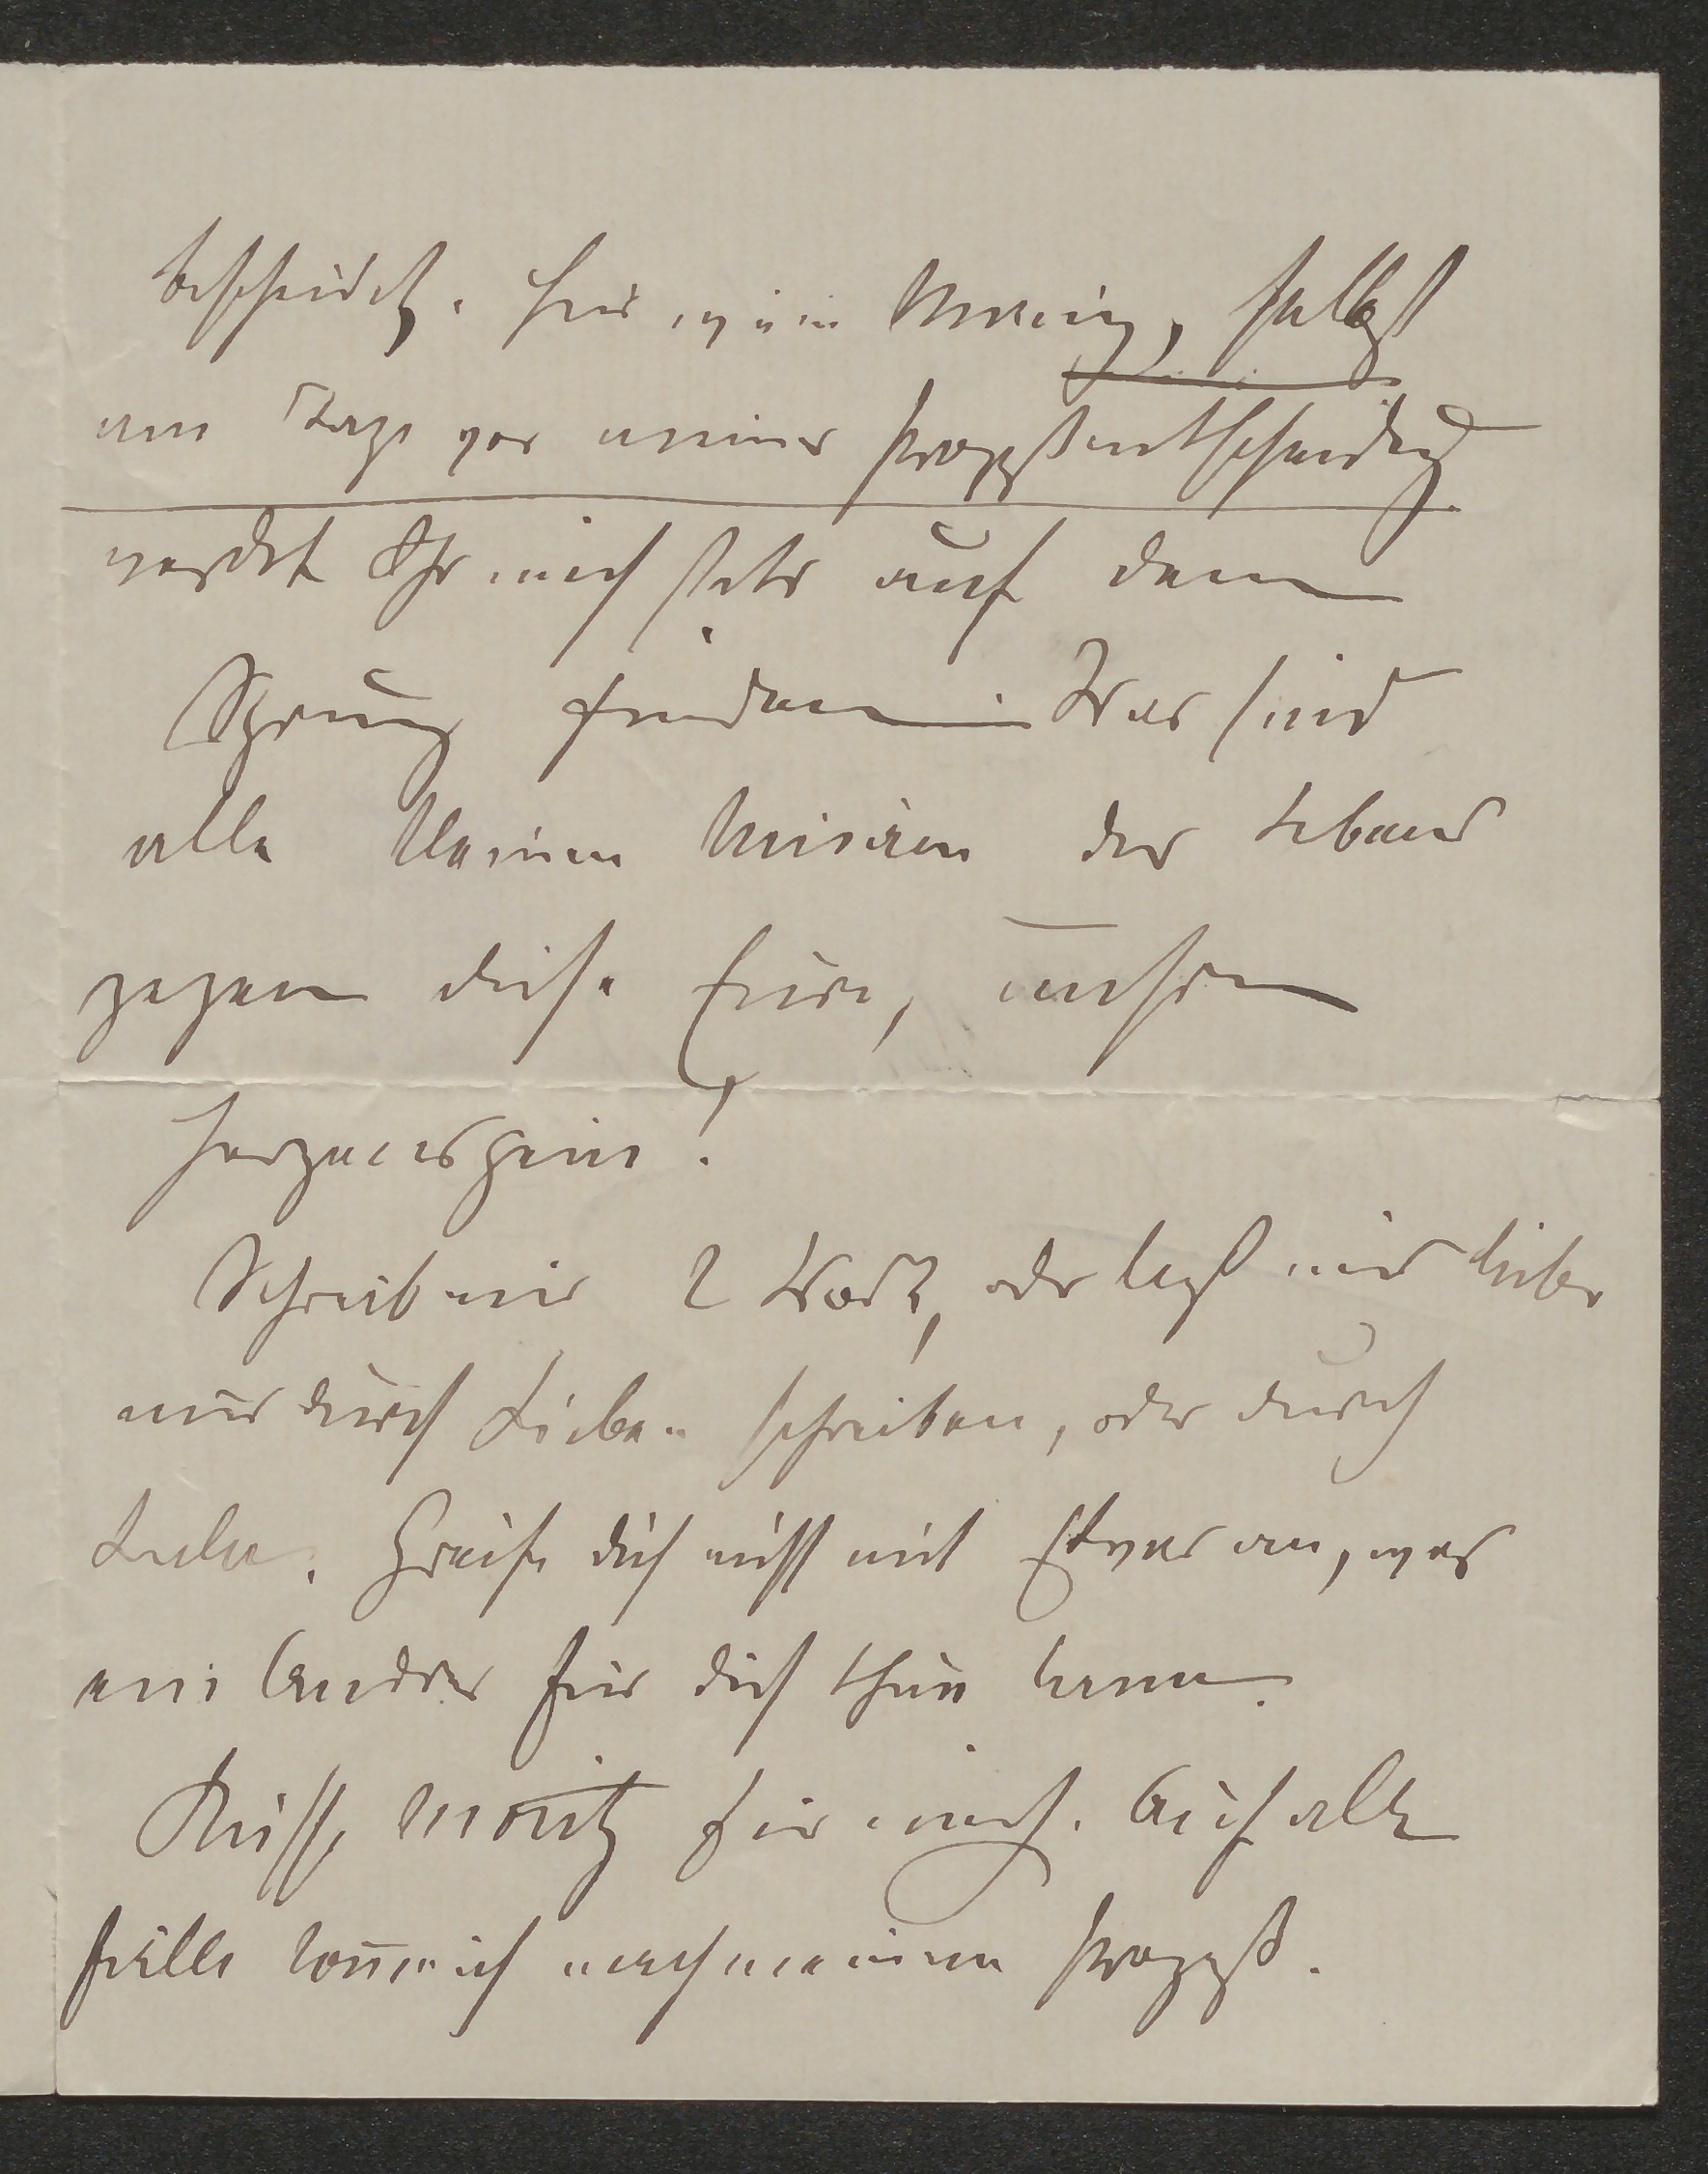 bescheidet. Für, mein Moritz, selbst
am Tage vor meiner Prozeßentscheidung
werdet Ihr mich stets auf dem
Sprung finden. Was sind
alle kleinen Misèren des Lebens
gegen diese Eure, unsre
Herzenspein!
Schreib mir 2 Worte, oder laß mir lieber
nur durch Lieben schreiben, oder durch
Greife dich nicht mit Etwas an, was
ein Andrer für dich thun kann.
Küsse Moritz für mich. Auf alle
Fälle komme ich nach meinem Prozeß.